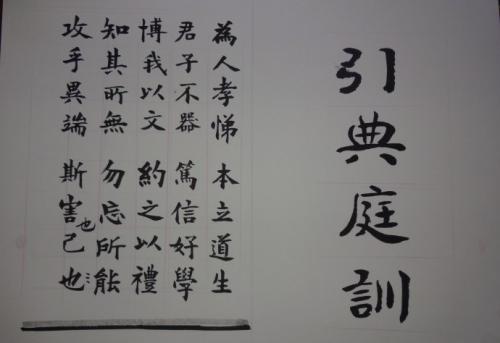 引典庭訓
為人孝悌 本立道生
君子不器 篤信好學
博我以文 約之以禮
知其所無 勿忘所能
攻乎異端 斯害也己也